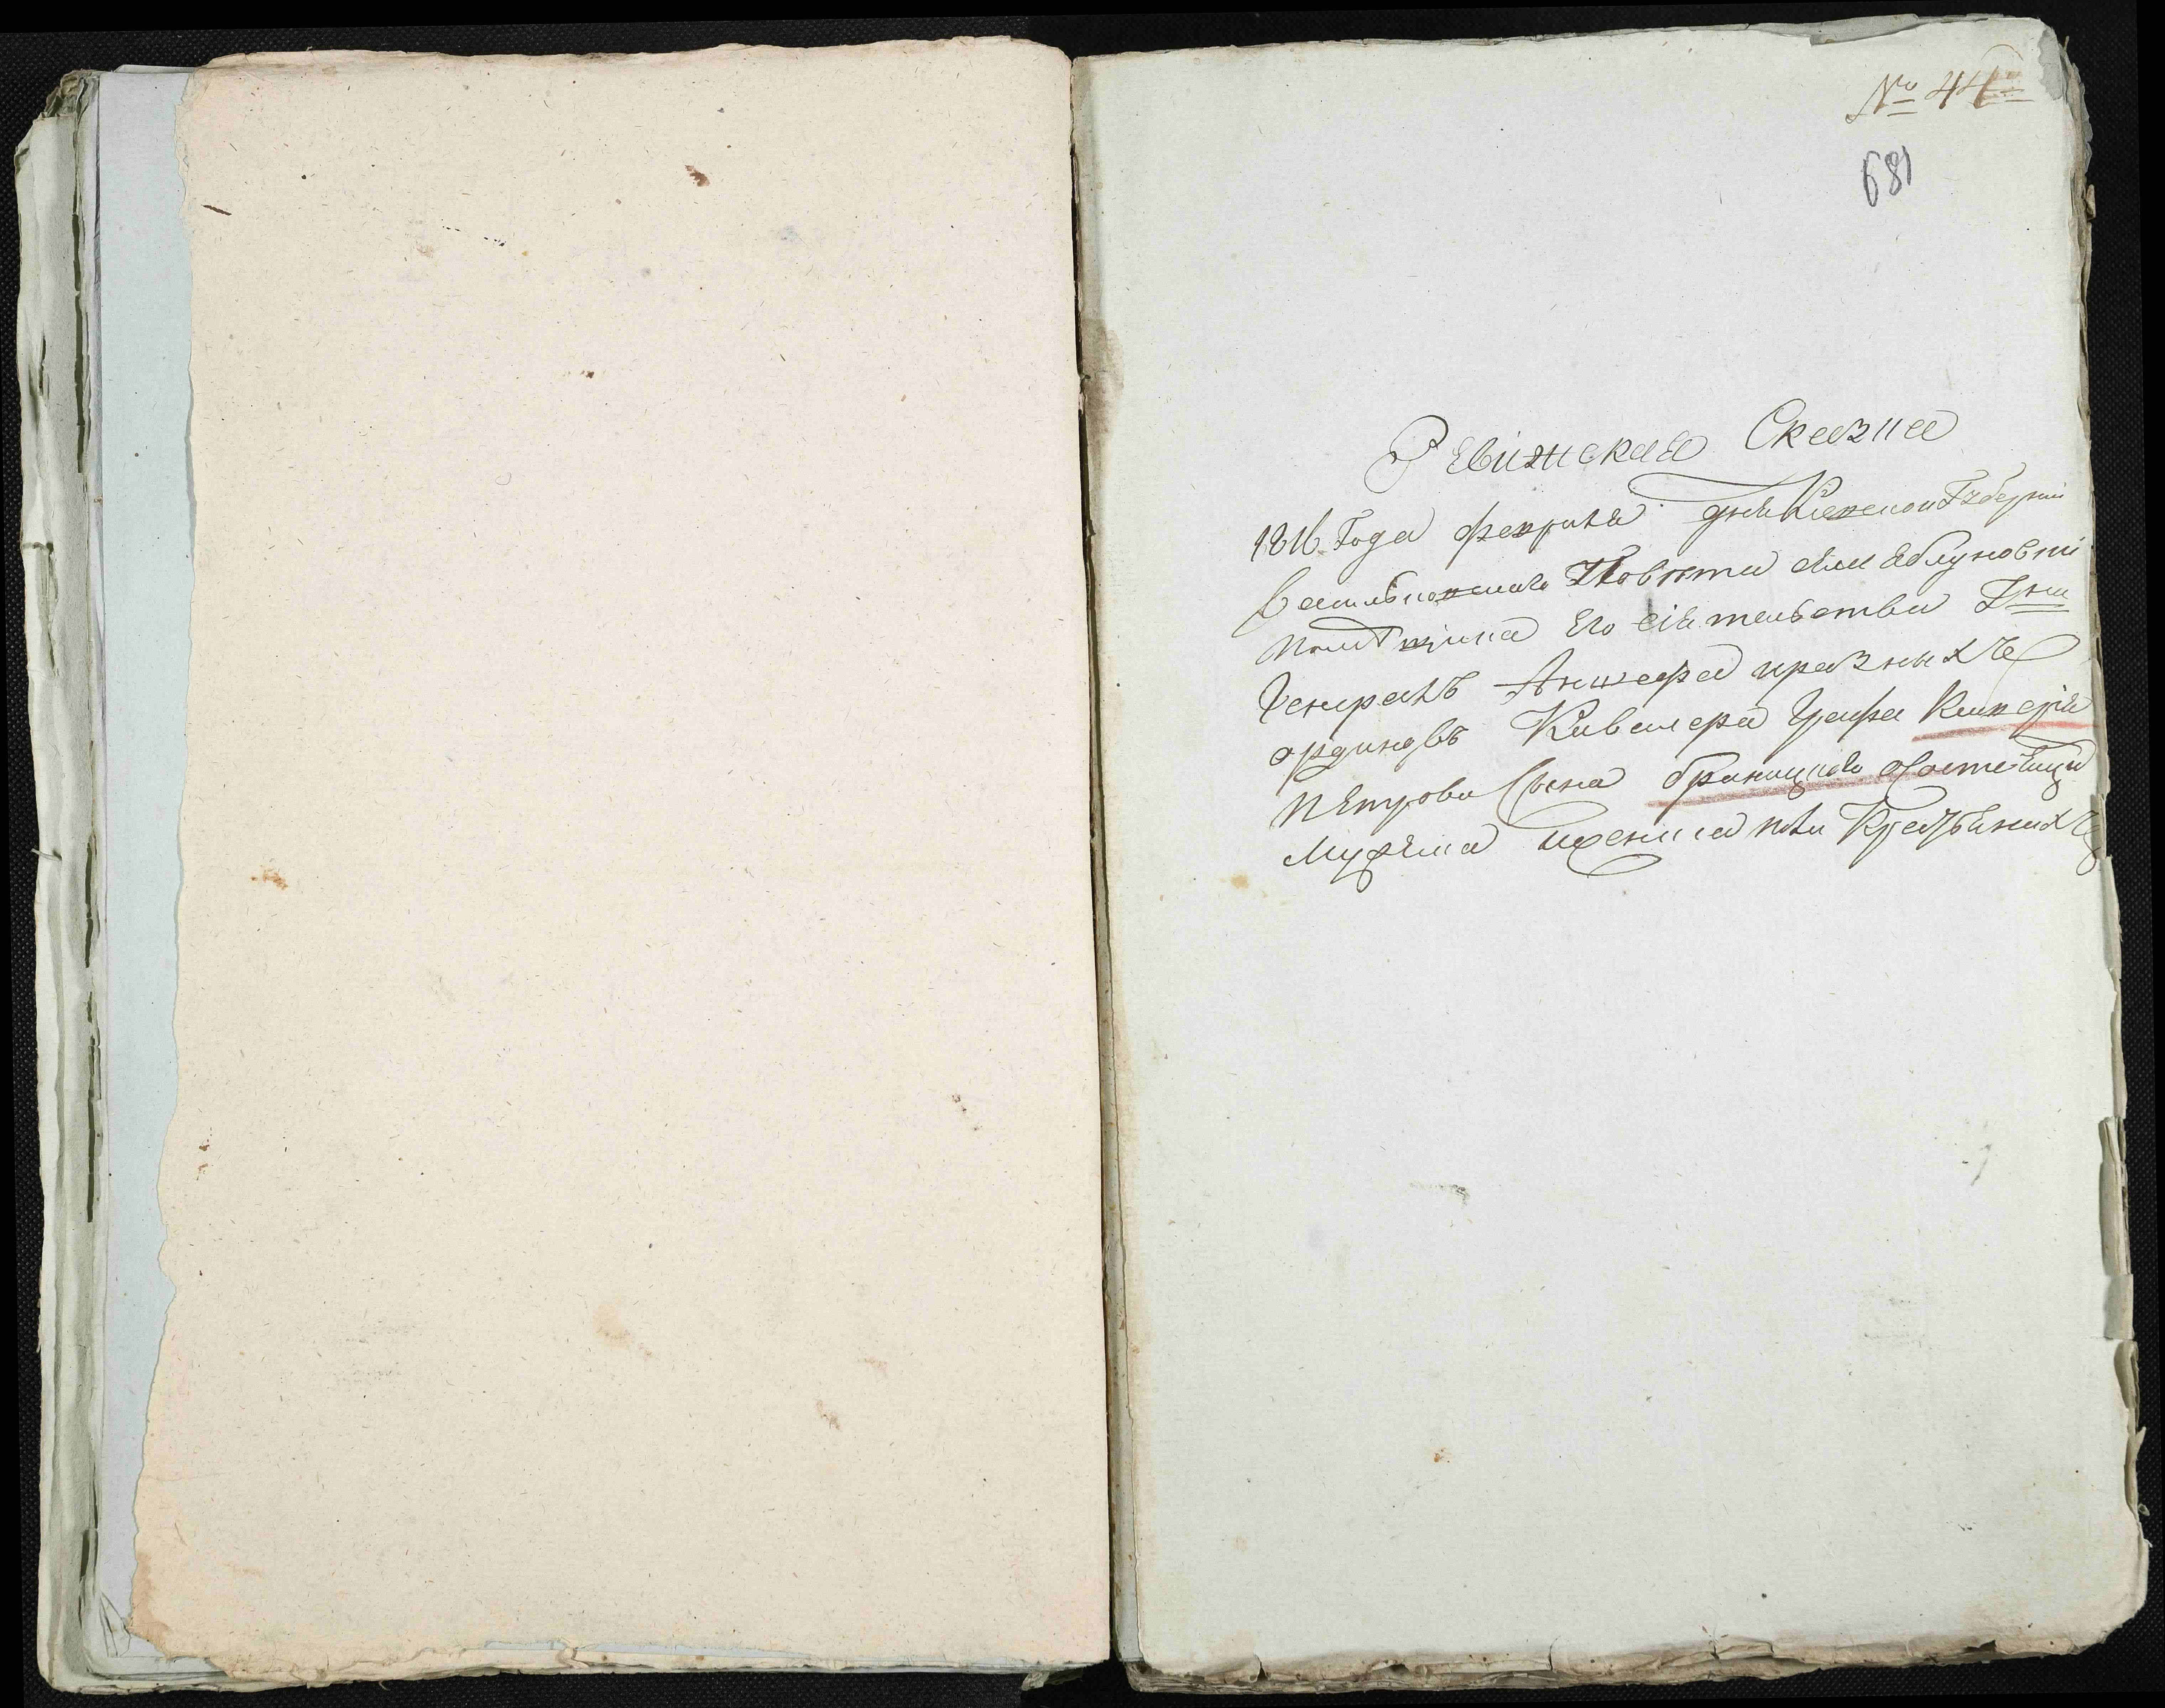 № 44
681
Ревижская Сказка
1816 Года февраля дня Киевской Губернии
Васильковскаго Повѣта села Яблуновки
помѣщика Его Сіятельства Гна
Генералъ Аншефа и разныхъ
ординовъ Кавалера Графа Ксаверія
Петрова Сына Браницкого о Состоящихъ
мужеска и женска пола Крестьянахъ